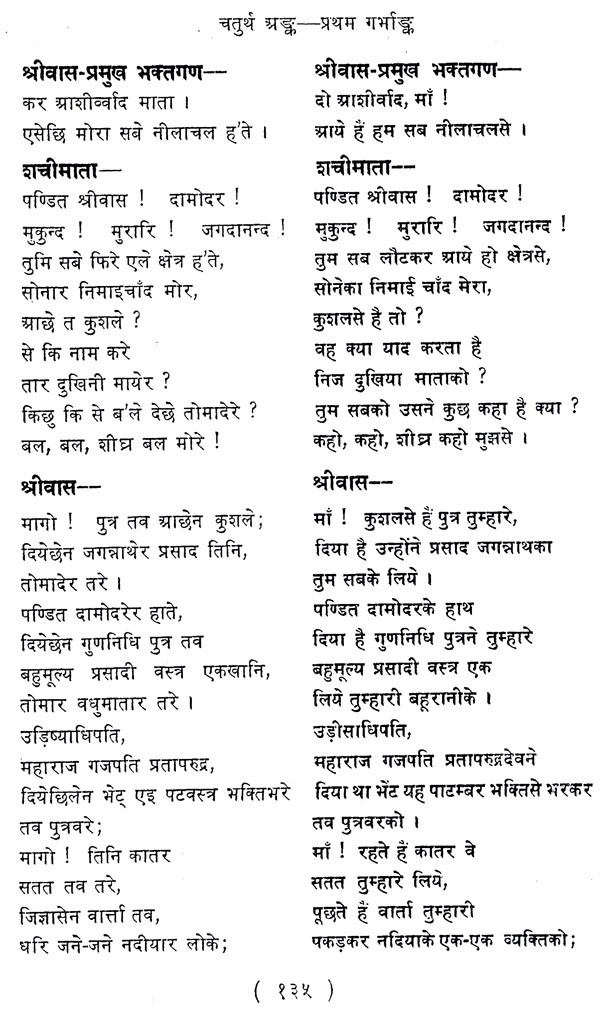 चतुर्थ अङ्क—प्रथम गर्भाङ्क
श्रीवास-प्रमुख भक्तगण—
कर आशीर्व्वाद माता ।
एसेछि मोरा सबे नीलाचल ह'ते ।
शचीमाता—
पण्डित श्रीवास ! दामोदर !
मुकुन्द ! मुरारि ! जगदानन्द !
तुमि सबे फिरे एले क्षेत्र ह'ते,
सोनार निमाइचाँद मोर,
आछे त कुशले ?
से कि नाम करे
तार दुखिनी मायेर ?
किछु कि से ब'ले देछे तोमादेरे ?
बल, बल, शीघ्र बल मोरे !
श्रीवास--
मागो ! पुत्र तव आछेन कुशले;
दियेछेन जगन्नाथेर प्रसाद तिनि,
तोमादेर तरे ।
पण्डित दामोदरेर हाते,
दियेछेन गुणनिधि पुत्र तव
बहुमूल्य प्रसादी वस्त्र एकखानि,
तोमार वधुमातार तरे ।
उड़िष्याधिपति,
महाराज गजपति प्रतापरुद्र,
दियेछिलेन भेट् एइ पटवस्त्र भक्तिभरे
तव पुत्रवरे;
मागो ! तिनि कातर
सतत तव तरे,
जिज्ञासेन वार्त्ता तव,
धरि जने-जने नदीयार लोके;
श्रीवास-प्रमुख भक्तगण—
दो आशीर्वाद, माँ !
आये हैं हम सब नीलाचलसे ।
शचीमाता--
पण्डित श्रीवास ! दामोदर !
मुकुन्द ! मुरारि ! जगदानन्द !
तुम सब लौटकर आये हो क्षेत्रसे,
सोनेका निमाई चाँद मेरा,
कुशलसे है तो ?
वह क्या याद करता है
निज दुखिया माताको ?
तुम सबको उसने कुछ कहा है क्या ?
कहो, कहो, शीघ्र कहो मुझसे ।
श्रीवास--
माँ ! कुशलसे हैं पुत्र तुम्हारे,
दिया है उन्होंने प्रसाद जगन्नाथका
तुम सबके लिये ।
पण्डित दामोदरके हाथ
दिया है गुणनिधि पुत्रने तुम्हारे
बहुमूल्य प्रसादी वस्त्र एक
लिये तुम्हारी बहूरानीके ।
उड़ीसाधिपति,
महाराज गजपति प्रतापरुद्रदेवने
दिया था भेंट यह पाटम्बर भक्तिसे भरकर
तव पुत्रवरको ।
माँ ! रहते हैं कातर वे
सतत तुम्हारे लिये,
पूछते हैं वार्ता तुम्हारी
पकड़कर नदियाके एक-एक व्यक्तिको;
( १३५ )